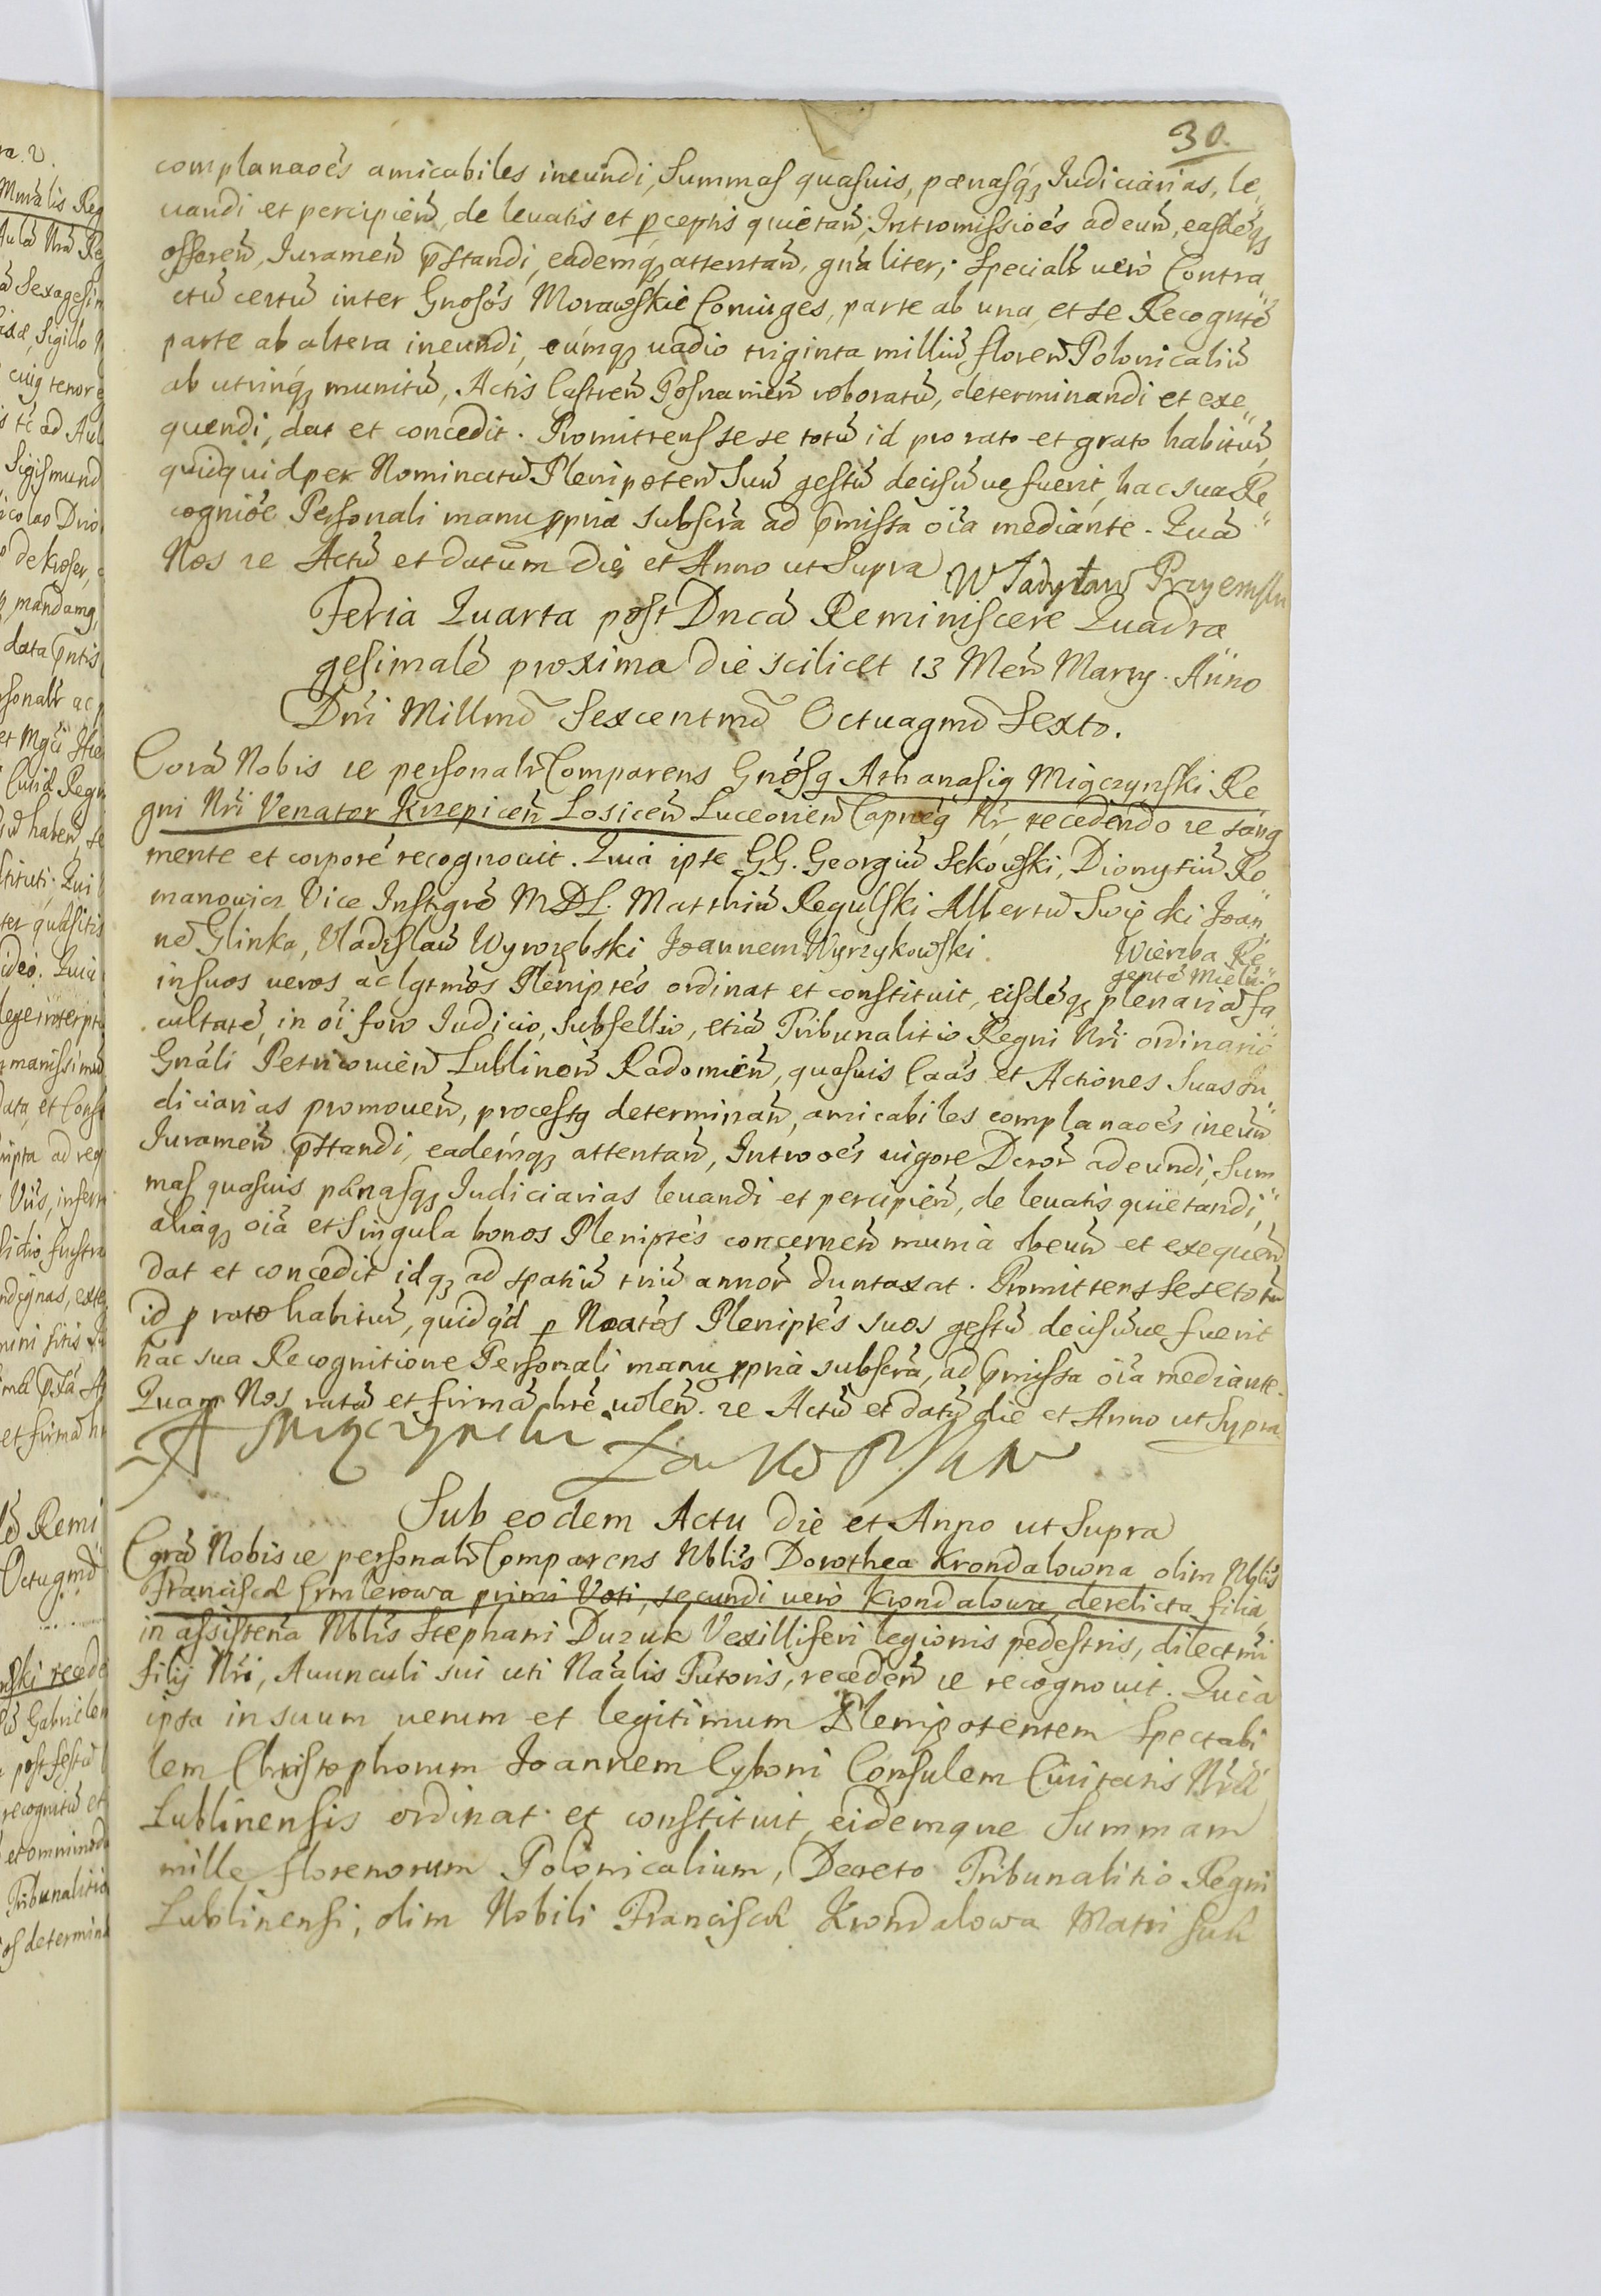 30.
complanaoẽs amicabiles ineundi, Summas quasuis, pænasq; Judiciarias, le„
uandi et percipien̄, de leuatis et p̱ceptis quietan̄, Intromissioẽs adeun̄, easdēq;
offeren̄, Juramen̄ p̄standi, eademq; attentan̄, gn̄aliter; Specialr̄ uerò Contra„
ctū certū inter Gnosōs Morawskie Coniuges, parte ab una, et se Recogntē
parte ab altera ineundi, eúmq; uadio triginta milliū floren̄ Polonicaliū
ab utrinq; munitū, Actis Castren̄ Posnanien̄ roboratū, determinandi et exe„
quendi, dat et concedit. Promittens se se totū id pro rato et grato habitur̄,
quidquid per Nominatū Plenipoten̄ Suū gestū decisū ue fuerit, hac sua Re„
cognioẽ Personali manu ppria subscrā ad p̄missa oīa mediante. Quā
Nos ꝛc Actū et datum die et Anno ut Supra
Władysław Przyemski
Feria Quarta post Dn̄cā Reminiscere Quadra„
gesimalē proxima die scilicet 13 Men̄ Martÿ. Anno
Dn̄i Millm̄o Sexcentm̄o Octuagm̄o Sexto.
Corā Nobis ꝛc personalr̄ Comparens Gnōsꝯ Athanasiꝯ Miączynski Re„
gni Nr̄i Venator Krzepicen̄ Losicen̄ Luceorien̄ Capn̄eꝯ Nr̄, recedendo ꝛc sanꝯ
mente et corpore recognouit. Quia ipse GG. Georgiū Sekowski, Dionysiū Ro„
manowicz Vice Instgrē MDL. Matthiū Regulski Albertū Swięcki Joan„
nē Glinka, Vladislaū Wyrozębski Joannem Wyrzykowski.
Wierzba Re„
gentē Mieln̄.
in suos ueros ac lgtm̄os Pleniptēs ordinat et constituit, eisdēq; plenariā fa„
cultatē, in oī foro Judicio, Subsellio, etiā Tribunalitio Regni Nr̄i ordinario
Gnāli Petricouien̄ Lublinen̄ Radomien̄, quasuis Caās et Actiones Suas Ju„
diciarias promouen̄, processꝯ determinan̄, amicabiles complanaoẽs ineun̄
Juramen̄ p̄standi, eadémq; attentan̄, Introoẽs uigore Dcror̄ adeundi, Sum„
mas quasuis pænasq; Judiciarias leuandi et percipien̄, de leuatis quietandi,
aliaq; oīa et Singula honos Pleniptēs concernen̄ munia obeun̄ et exequen̄
dat et concedit idq; ad spatiū triū annor̄ duntaxat. Promittens se se totū
id p rato habitur̄, quidqd p̱ Noatōs Pleniptēs suos gestū decisūue fuerit
hac sua Recognitione Personali manu ppria subscrā, ad p̄missa oīa mediante.
Quam Nos ratā et firmā hrē uolen̄. ꝛc Actū et datū die et Anno ut Supra
A Miączynski
Sub eodem Actu Die et Anno ut Supra
Corā Nobis ꝛc personalr̄ Comparens Nblīs Dorothea Krondalowna olim Nblīs
Franciscæ Ermlerowa primi Voti, secundi uerò Krondalowa derelicta filia,
in assistēna Nblīs Stephani Duzuk Vexilliferi legionis pedestris, dilectm̄i
filij Nr̄i, Auunculi sui uti Naālis Tutoris, receden̄ ꝛc recognouit. Quia
ipsa in suum uerum et legitimum Plenipotentem Spectabi
lem Christophorum Joannem Cyboni Consulem Ciuitatis Nræ
Lublinensis ordinat et constituit, eidemque Summam
mille florenorum Polonicalium, Decreto Tribunalitio Regni
Lublinensi, olim Nobili Franciscæ Krondalowa Matri Suæ